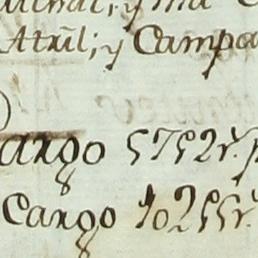 Atril; y Campa
argo 5752 r. p
Cargo 10255 r.